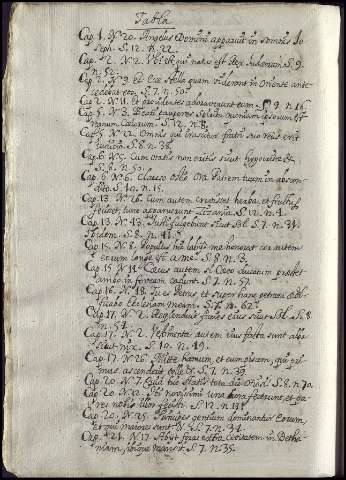 Tabla
Cap. 1. N. 20. Angelus Domini apparuit in somnis Jo
seph. S. 12. n. 22.
Cap. 2. N. 2. Vbi est qui natus est Rex Judæorum. S. 9.
n. 52.
Cap. 2. N. 9. Et Ecce Stella quam viderant in Oriente ante
cedebat eos. S. 7. n. 50.
Cap. 2. N. 11. Et procidentes adoraverunt eum. S. 9. n. 16.
Cap. 5. N. 3. Beati pauperes Spiritu quoniam ipsorum est
regnum Cælorum. S. 12. n. 8.
Cap. 5. N. 22. Omnis qui irascitur fratri suo reus erit
iudicio. S. 8. n. 38.
Cap. 6. N. 5. Cum oratis non eritis sicut hypocritæ
S. 8. n. 53.
Cap. 6. N. 6. Clauso ostio Ora Patrem tuum in abscon-
dito. S. 10. n. 15.
Cap. 13. N. 26. Cum autem crevisset herba, et fructum
fecisset, tunc apparuerunt Zizania. S. 12. n. 4.
Cap. 13. N. 43. Justi fulgebunt sicut Sol. S. 7. n. 34.
Ibidem. S. 8. n. 41.
Cap. 15. N. 8. Populus hic labijs me honorat cor autem
eorum longe est a me. S. 8. n. 8.
Cap. 15. N. 14. Cæcus autem si Cæco ducatum præstet
ambo in foveam cadunt. S. 7. n. 57.
Cap. 16. N. 18. Tu es Petrus et super hanc petram ædi-
ficabo Ecclesiam meam. S. 7. n. 62.
Cap. 17. N. 2. Resplenduit facies eius sicut Sol. S. 8.
n. 54.
Cap. 17. N. 2. Vestimenta autem eius facta sunt alba
sicut nix. S. 10. n. 49.
Cap. 17. N. 26. Mitte hamum, et eum piscem, qui pri-
mus ascenderit tolle. S. 7. n. 39.
Cap. 20. N. 7. Quid hic statis tota die otiosi. S. 8. n. 70.
Cap. 20. N. 12. Hi novissimi una hora fecerunt, et pa-
res nobis illos fecisti. S. 12. n.
Cap. 20. N. 25. Principes gentium dominantur Eorum,
et qui maiores sunt. S. 7. n. 34.
Cap. 21. N. 17. Abijt foras extra Civitatem in Betha-
niam, ibique mansit. S. 7. n. 35.